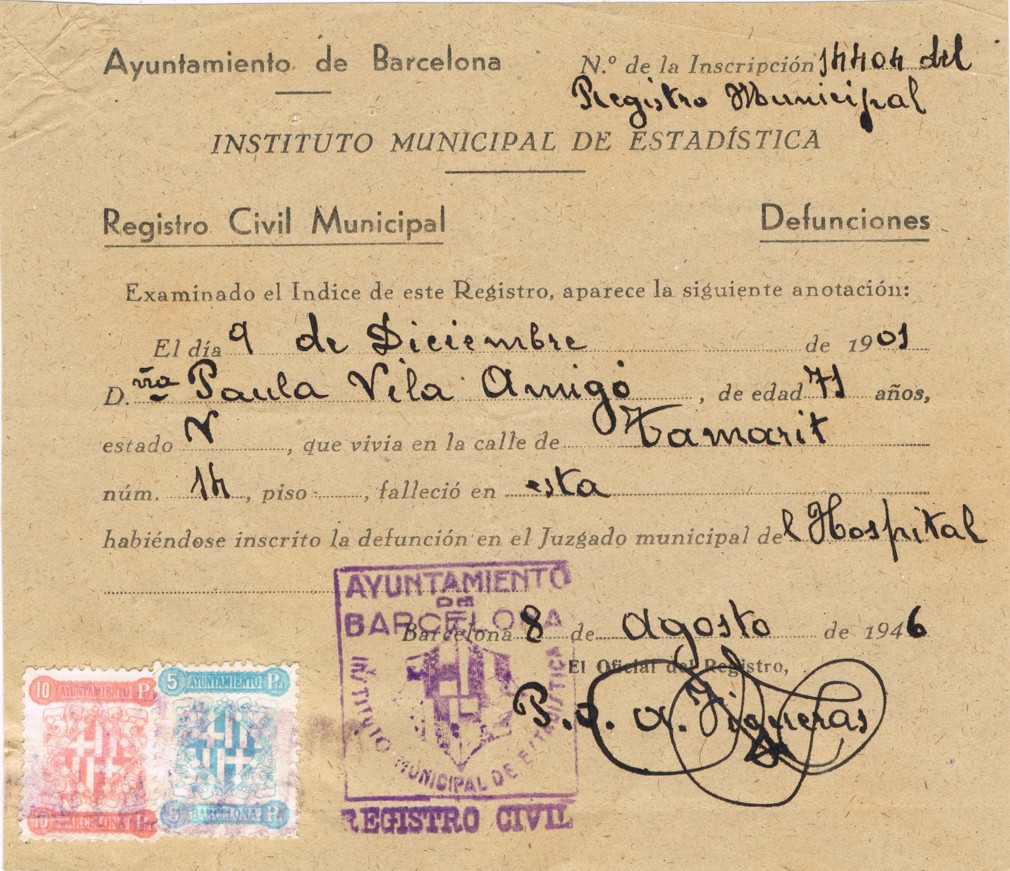 Ayuntamiento de Barcelona
N.º de la Inscripción 14404 del
Registro Municipal
INSTITUTO MUNICIPAL DE ESTADÍSTICA
Registro Civil Municipal
Defunciones
Examinado el Indice de este Registro, aparece la siguiente anotación:
El día 9 de Diciembre de 1901
D.ña Paula Vila Amigó, de edad 71 años,
estado V, que vivia en la calle de Tamarit
núm. 14, piso, falleció en esta
habiéndose inscrito la defunción en el Juzgado municipal del Hospital
Barcelona 8 de agosto de 1946
El Oficial del Registro,
P. o. A. Figueras
AYUNTAMIENTO
DE
BARCELONA
INSTITUTO MUNICIPAL DE ESTADISTICA
REGISTRO CIVIL
10 AYUNTAMIENTO Pts
10 BARCELONA Pts
5 AYUNTAMIENTO Pts
5 BARCELONA Pts